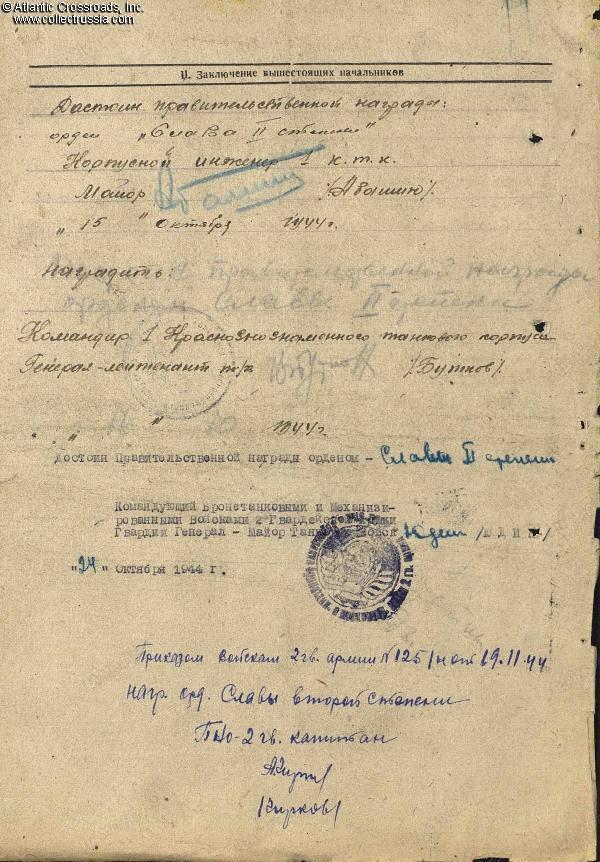 © Atlantic Crossroads, Inc.
www.collectrussia.com
II. Заключение вышестоящих начальников
Достоин правительственной награды:
орден "Слава II степени"
Корпусной инженер 1 к.т.к.
Майор /Авашию/.
"15" октября 1944г.
Наградить: правительственной награды
орденом Славы II степени
Командир 1 Краснознознаменного танкового корпуса
Генерал-лейтенант т/в /Бутков/.
" 16 " 10 1944г.
Достоин Правительственной награды орденом - Славы II степени
Командующий Бронетанковыми и Механизи-
рованными Войсками 2 Гвардейской Армии
Гвардии Генерал - Майор Танковых Войск /ЮДИН/
"24" октября 1944 г.
Приказом войскам 2гв. армии N125/н от 19.11.44
нагр. орд. Славы второй степени
ПНО-2 гв. капитан
Кирков